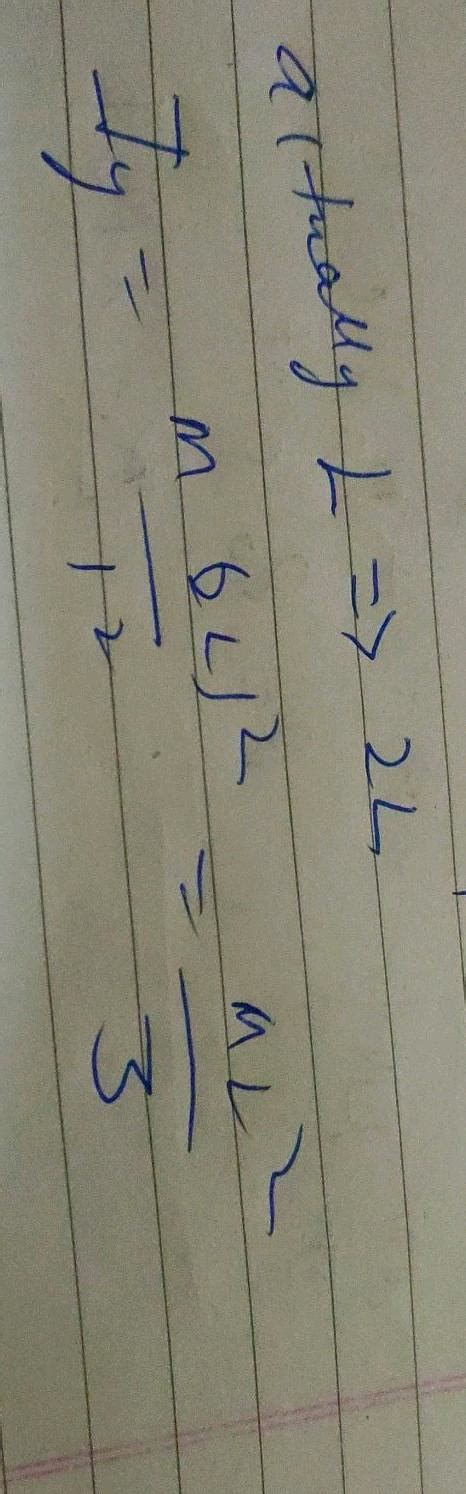 actually L => 2L
Iy = m 6L)² / 12 = mL² / 3